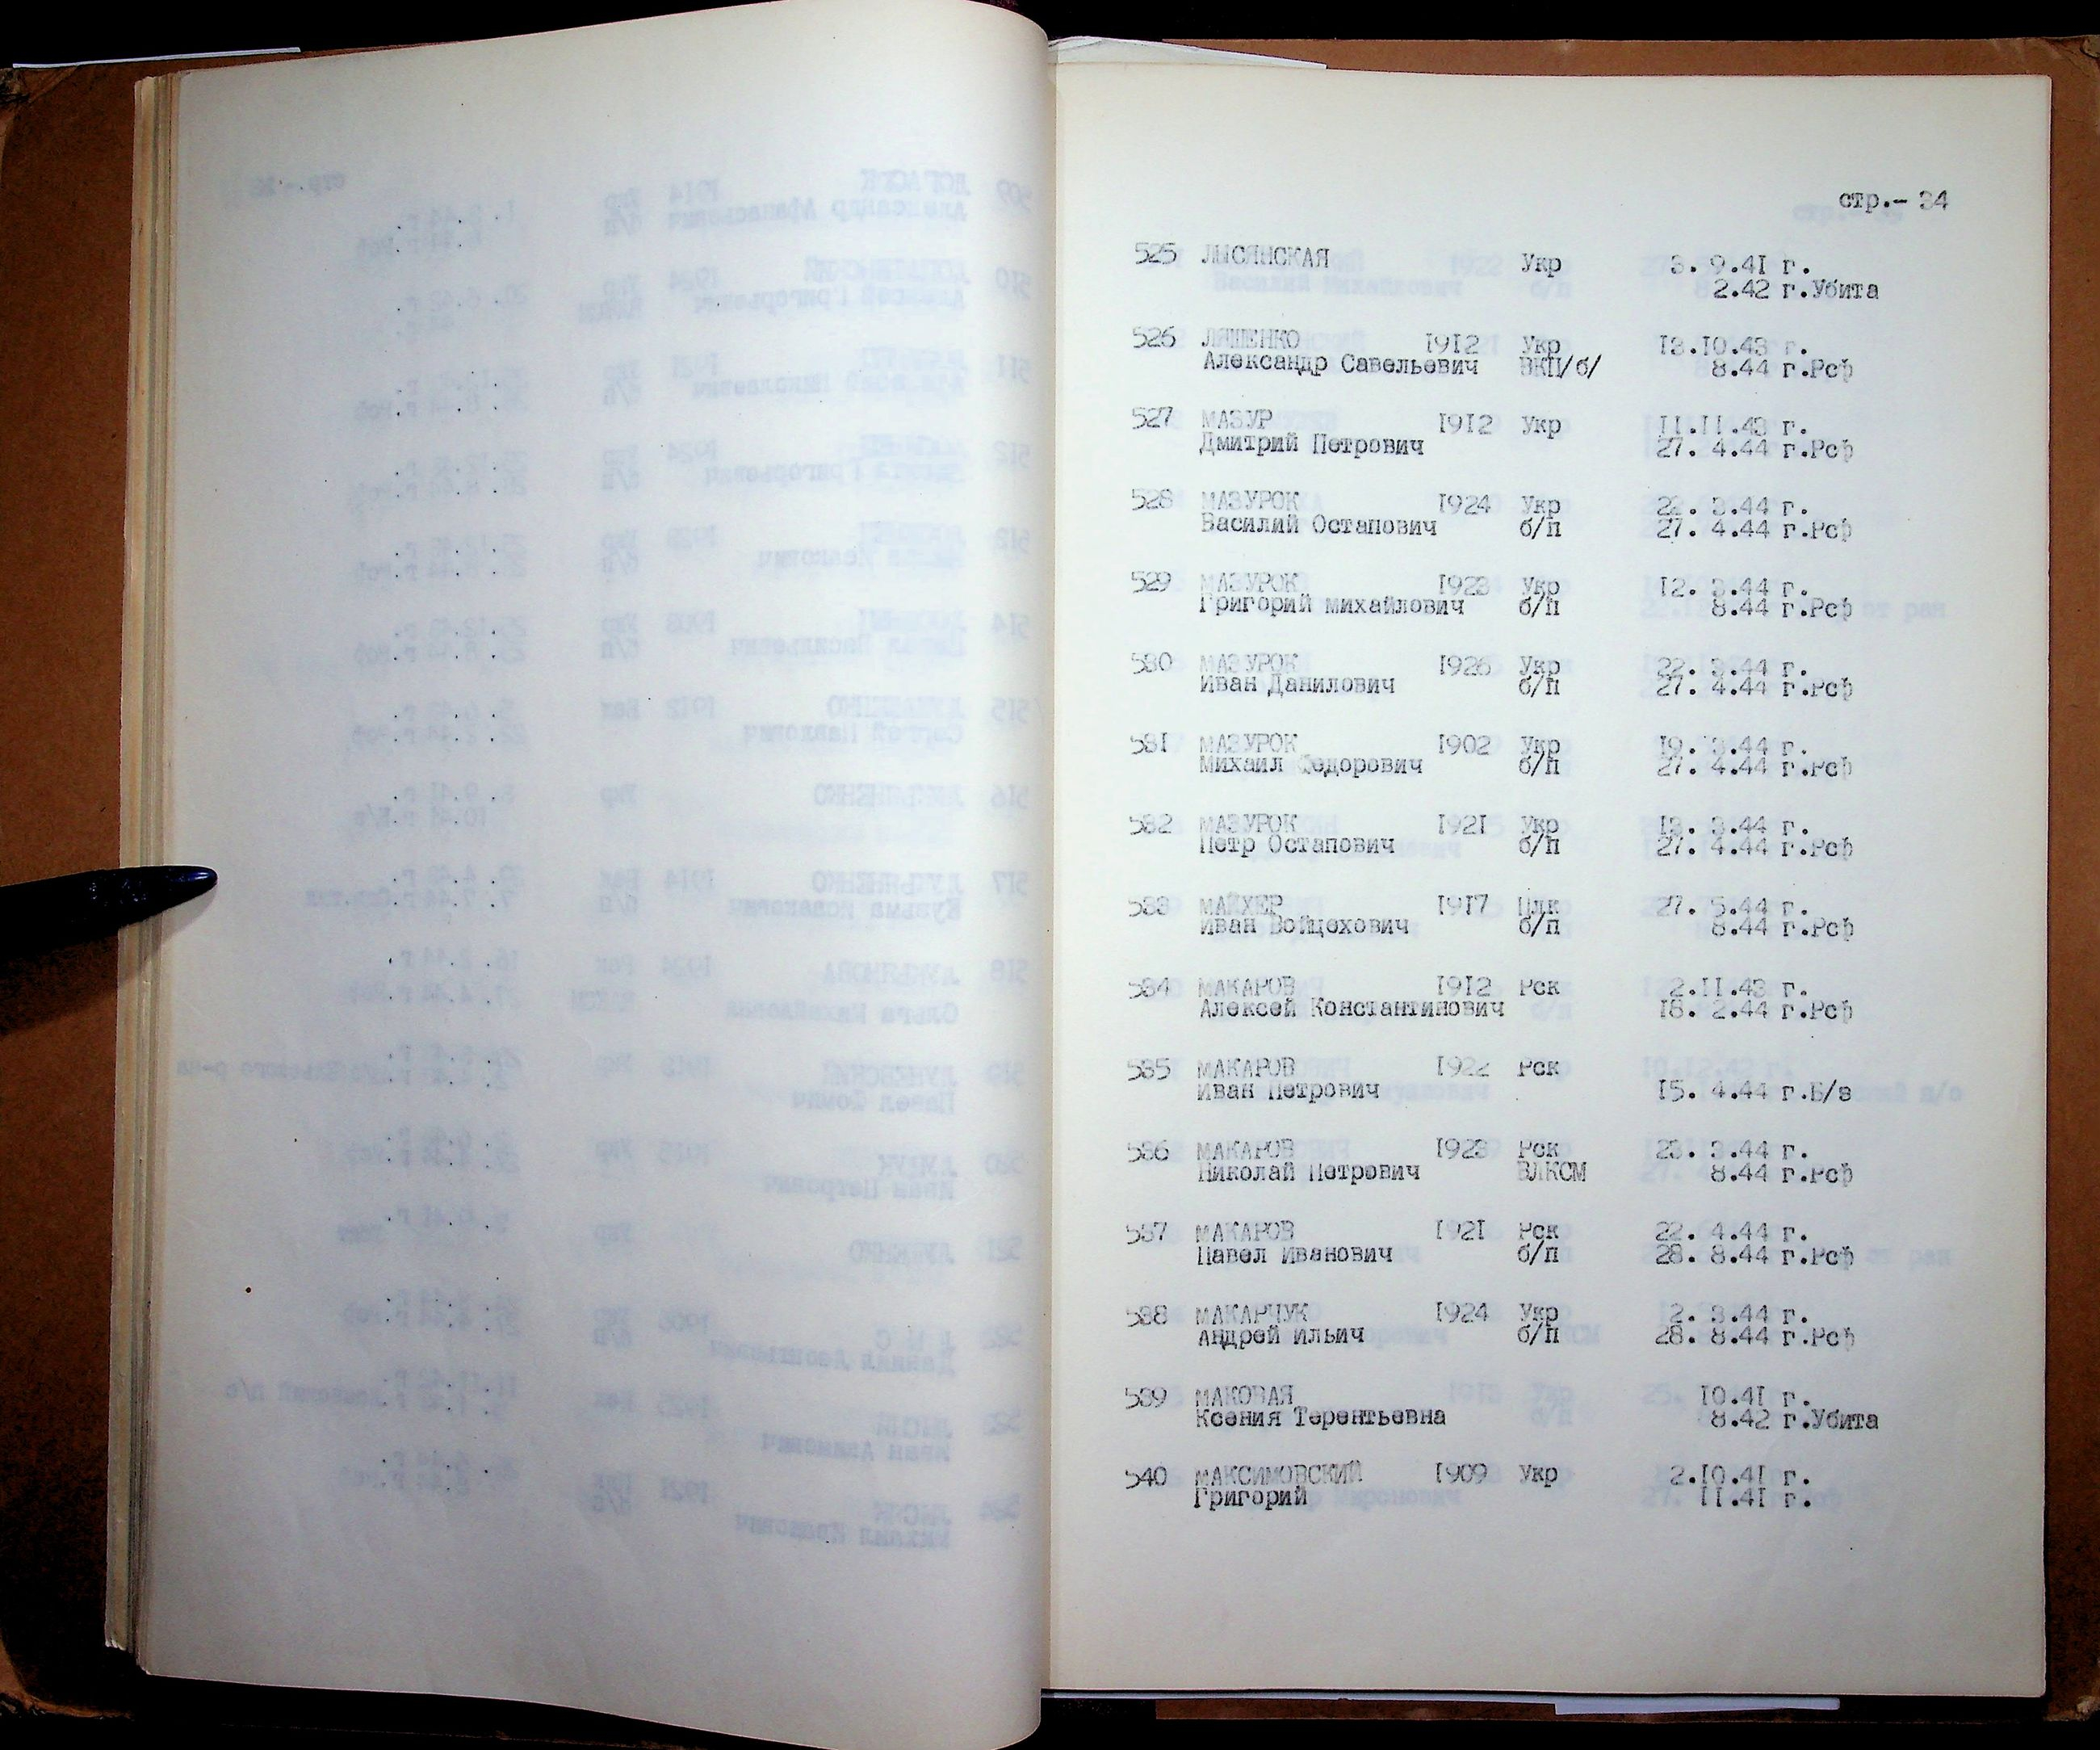 стр.- 34
525 ЛЫСЯНСКАЯ Укр 3. 9.41 г.
2.42 г.Убита
526 ЛЯШЕНКО 1912 Укр 13.10.43 г.
Александр Савельевич ВКП/б/ 8.44 г.Рсф
527 МАЗУР 1912 Укр 11.11.43 г.
Дмитрий Петрович 27. 4.44 г.Рсф
528 МАЗУРОК 1924 Укр 22. 3.44 г.
Василий Остапович б/п 27. 4.44 г.Рсф
529 МАЗУРОК 1923 Укр 12. 3.44 г.
Григорий михайлович б/п 8.44 г.Рсф
530 МАЗУРОК 1926 Укр 22. 3.44 г.
Иван Данилович б/п 27. 4.44 г.Рсф
531 МАЗУРОК 1902 Укр 19. 3.44 г.
Михаил Федорович б/п 27. 4.44 г.Рсф
532 МАЗУРОК 1921 Укр 13. 3.44 г.
Петр Остапович б/п 27. 4.44 г.Рсф
533 МАЙХЕР 1917 Плк 27. 5.44 г.
Иван Войцехович б/п 8.44 г.Рсф
534 МАКАРОВ 1912 Рск 2.11.43 г.
Алексей Константинович 18. 2.44 г.Рсф
535 МАКАРОВ 1922 Рск
Иван Петрович 15. 4.44 г.Б/в
536 МАКАРОВ 1923 Рск 23. 3.44 г.
Николай Петрович ВЛКСМ 8.44 г.Рсф
537 МАКАРОВ 1921 Рск 22. 4.44 г.
Павел Иванович б/п 28. 8.44 г.Рсф
538 МАКАРЧУК 1924 Укр 2. 3.44 г.
Андрей Ильич б/п 28. 8.44 г.Рсф
539 МАКОВАЯ 10.41 г.
Ксения Терентьевна 8.42 г.Убита
540 МАКСИМОВСКИЙ 1909 Укр 2.10.41 г.
Григорий 11.41 г.